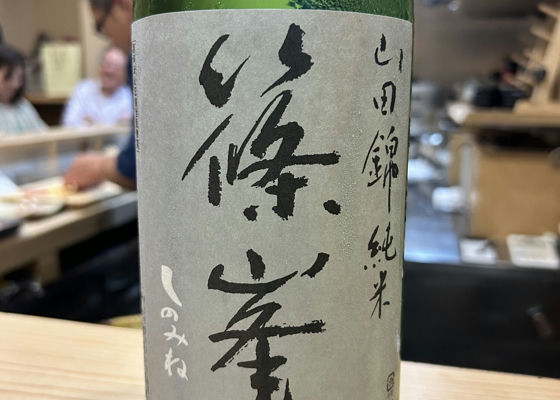 山田錦 純米
篠峯
しのみね